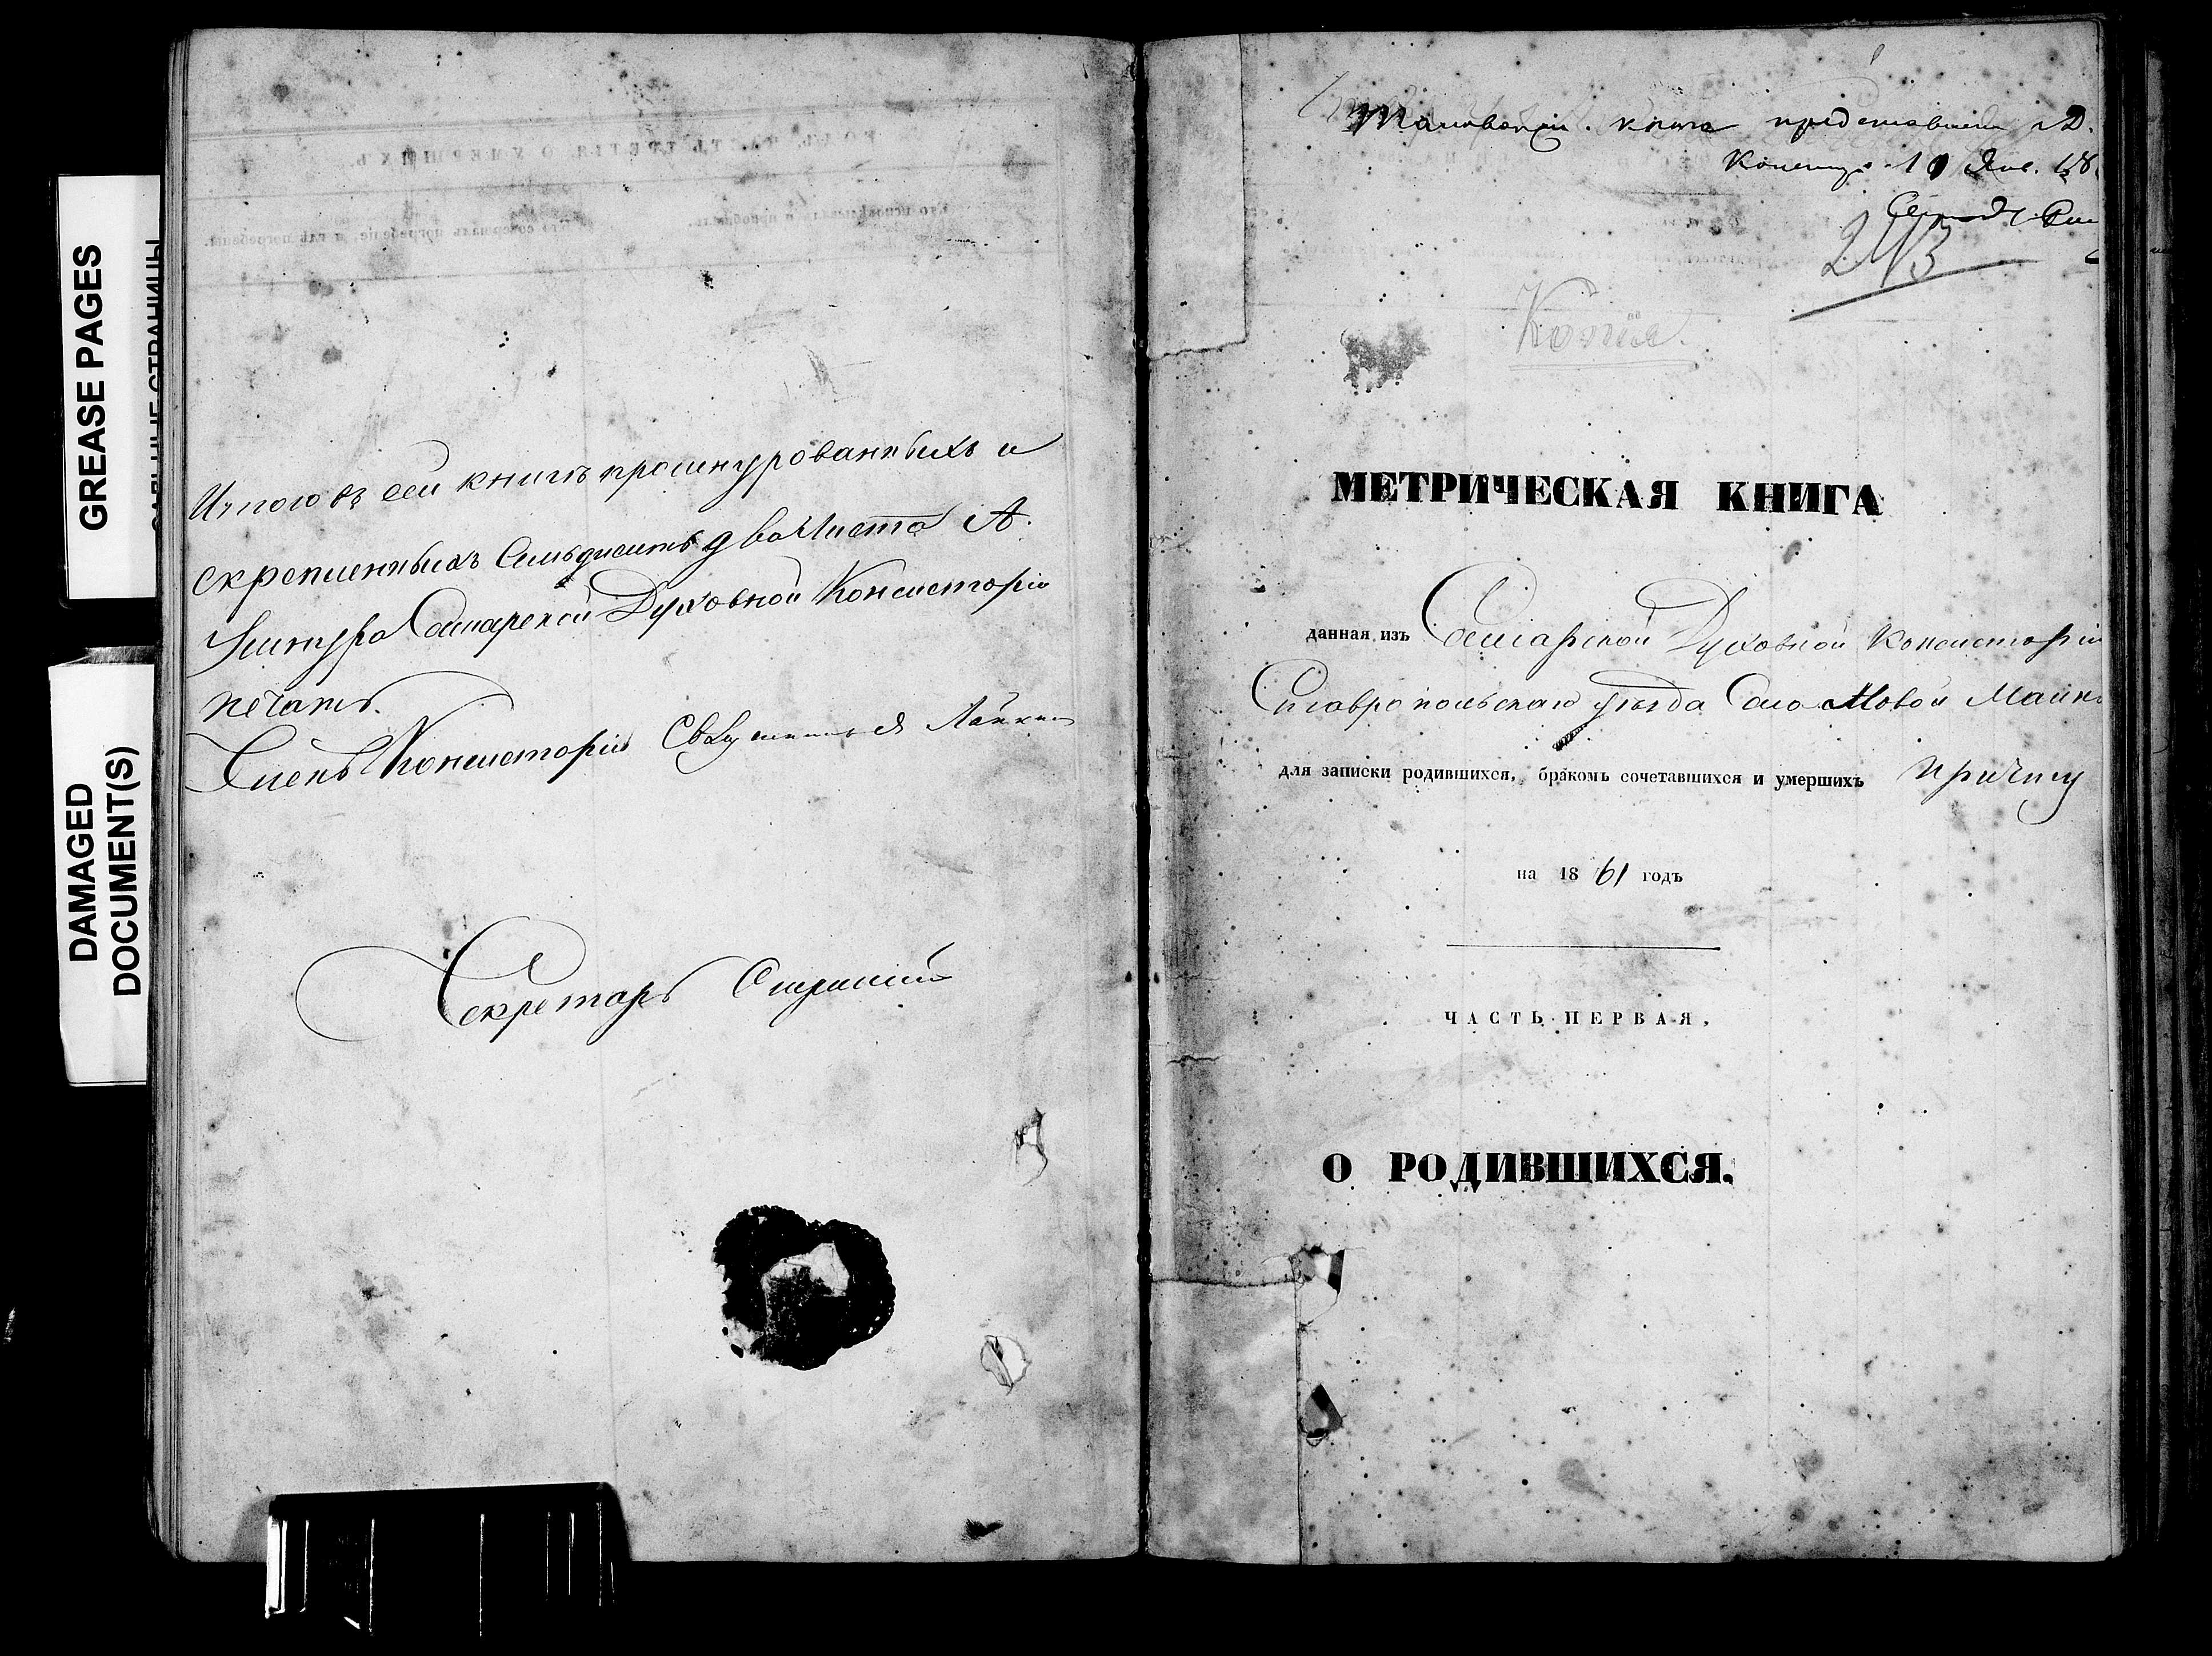 GREASE PAGES
DAMAGED
DOCUMENT(S)
Итого въ сей книгѣ прошнурованныхъ и
скрепленныхъ Семьдесятъ два листа А.
Ушнура Самарской Духовной Консисторіи
печать.
Членъ Консисторіи Священникъ
Секретарь
книга
Д.
Консист. 10 Янв. 18
243
Копія.
МЕТРИЧЕСКАЯ КНИГА
данная изъ Самарской Духовной Консисторіи
Ставропольскаго уѣзда Села Новой Майны
для записки родившихся, бракомъ сочетавшихся и умершихъ причту
на 1861 годъ
ЧАСТЬ ПЕРВАЯ,
О РОДИВШИХСЯ.